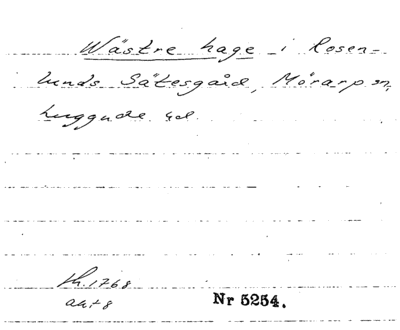 Wästre hage i Rosen-
lunds Sätesgård, Mörarp sn,
Luggude hd.
sk. 1768
akt 8
Nr 5254.